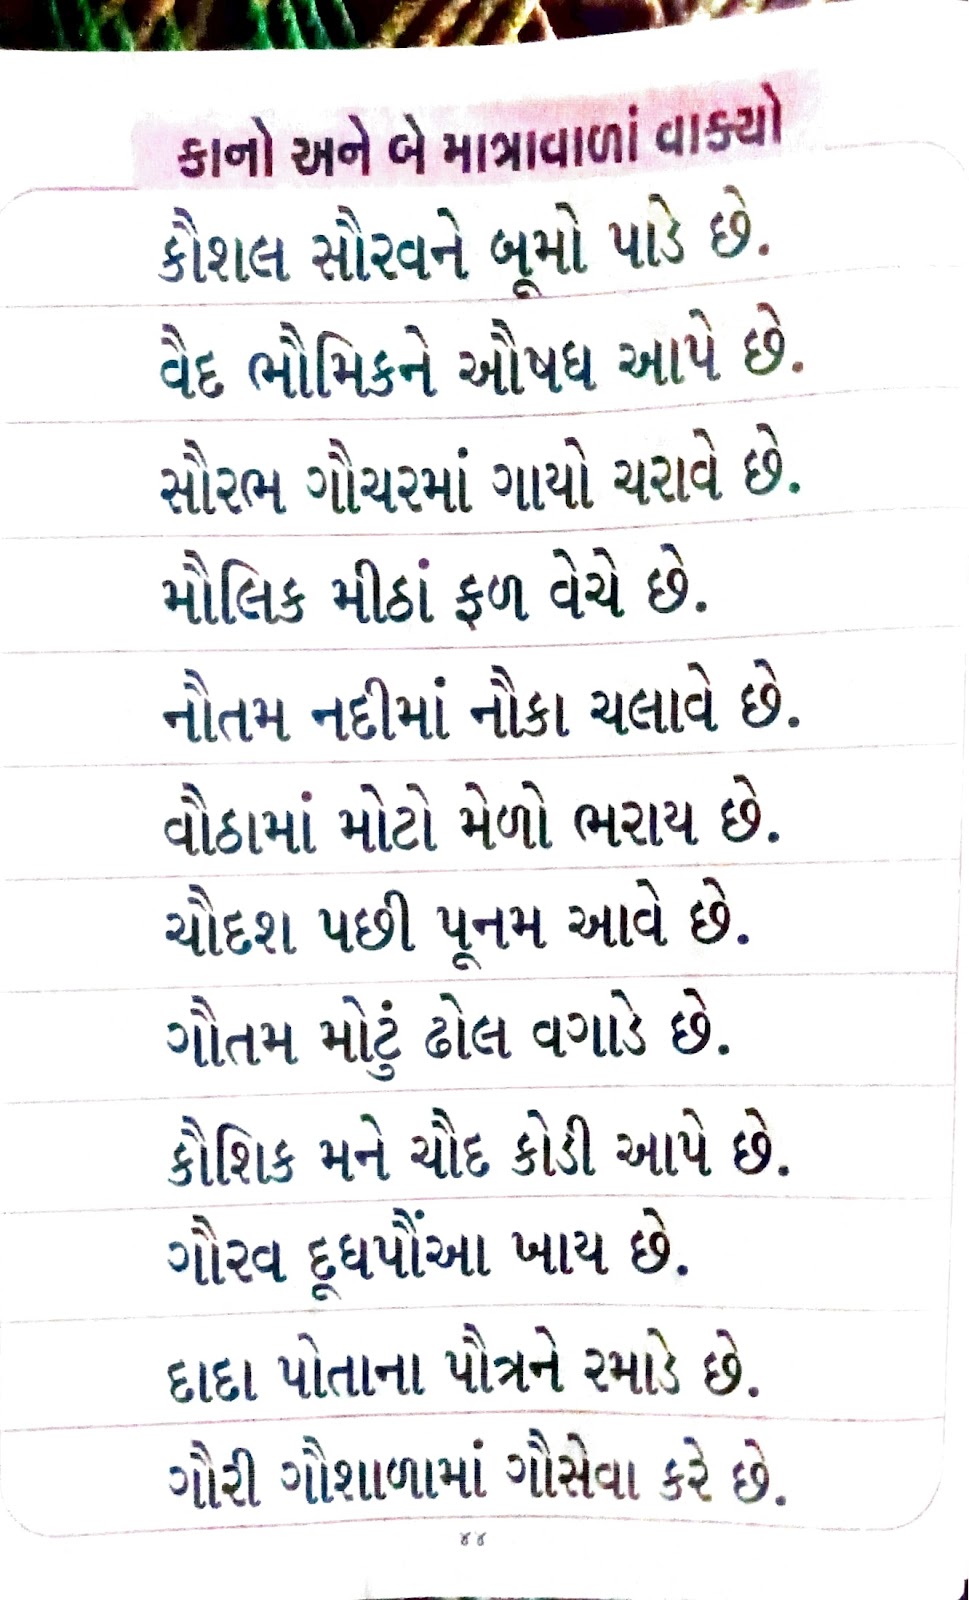 કાનો અને બે માત્રાવાળાં વાક્યો
કૌશલ સૌરવને બૂમો પાડે છે.
વૈદ ભૌમિકને ઔષધ આપે છે.
સૌરભ ગૌચરમાં ગાયો ચરાવે છે.
મૌલિક મીઠાં ફળ વેચે છે.
નૌતમ નદીમાં નૌકા ચલાવે છે.
વૌઠામાં મોટો મેળો ભરાય છે.
ચૌદશ પછી પૂનમ આવે છે.
ગૌતમ મોટું ઢોલ વગાડે છે.
કૌશિક મને ચૌદ કોડી આપે છે.
ગૌરવ દૂધપૌંઆ ખાય છે.
દાદા પોતાના પૌત્રને રમાડે છે.
ગૌરી ગૌશાળામાં ગૌસેવા કરે છે.
૪૪